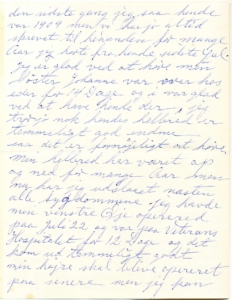 den sidste gang jeg saa hende
var 1909 men vi har jo altid
skrevet til hinanden for mange
Aar jeg hørte fra hende sidste Jul.
Jeg er glad ved at høre min
Søster Johanne var over hos
eder for 14 Dage og i var glad
ved at have hende der, jeg
tror jo nok hendes helbred er
temmeligt god endnu
saa det er fornøjeligt at høre
Min helbred har været op
og ned for mange Aar
nu har jeg udstaaet næsten
alle sygdomme. jeg havde
men venstre Øje opereret
paa Juli 22 og var paa Veterans
Hospitalet for 12 Dage og det
kom ud temmeligt godt
min højre skal blive opereret
paa senere men jeg